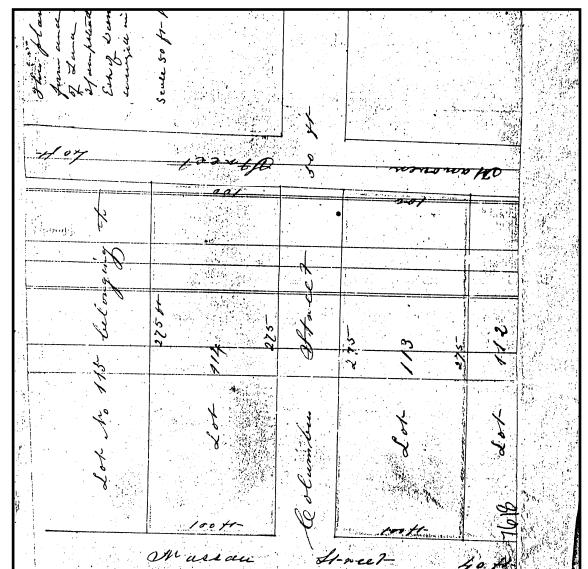 this plan
of Land
Scale 50 ft
40 ft
Street
50 ft
Hanover
100
100
Lot No 115 belonging to
275 ft
Lot 114
275
Columbus Street
275
Lot 113
275
Lot 112
100 ft
100 ft
Nassau Street 40 ft
7618